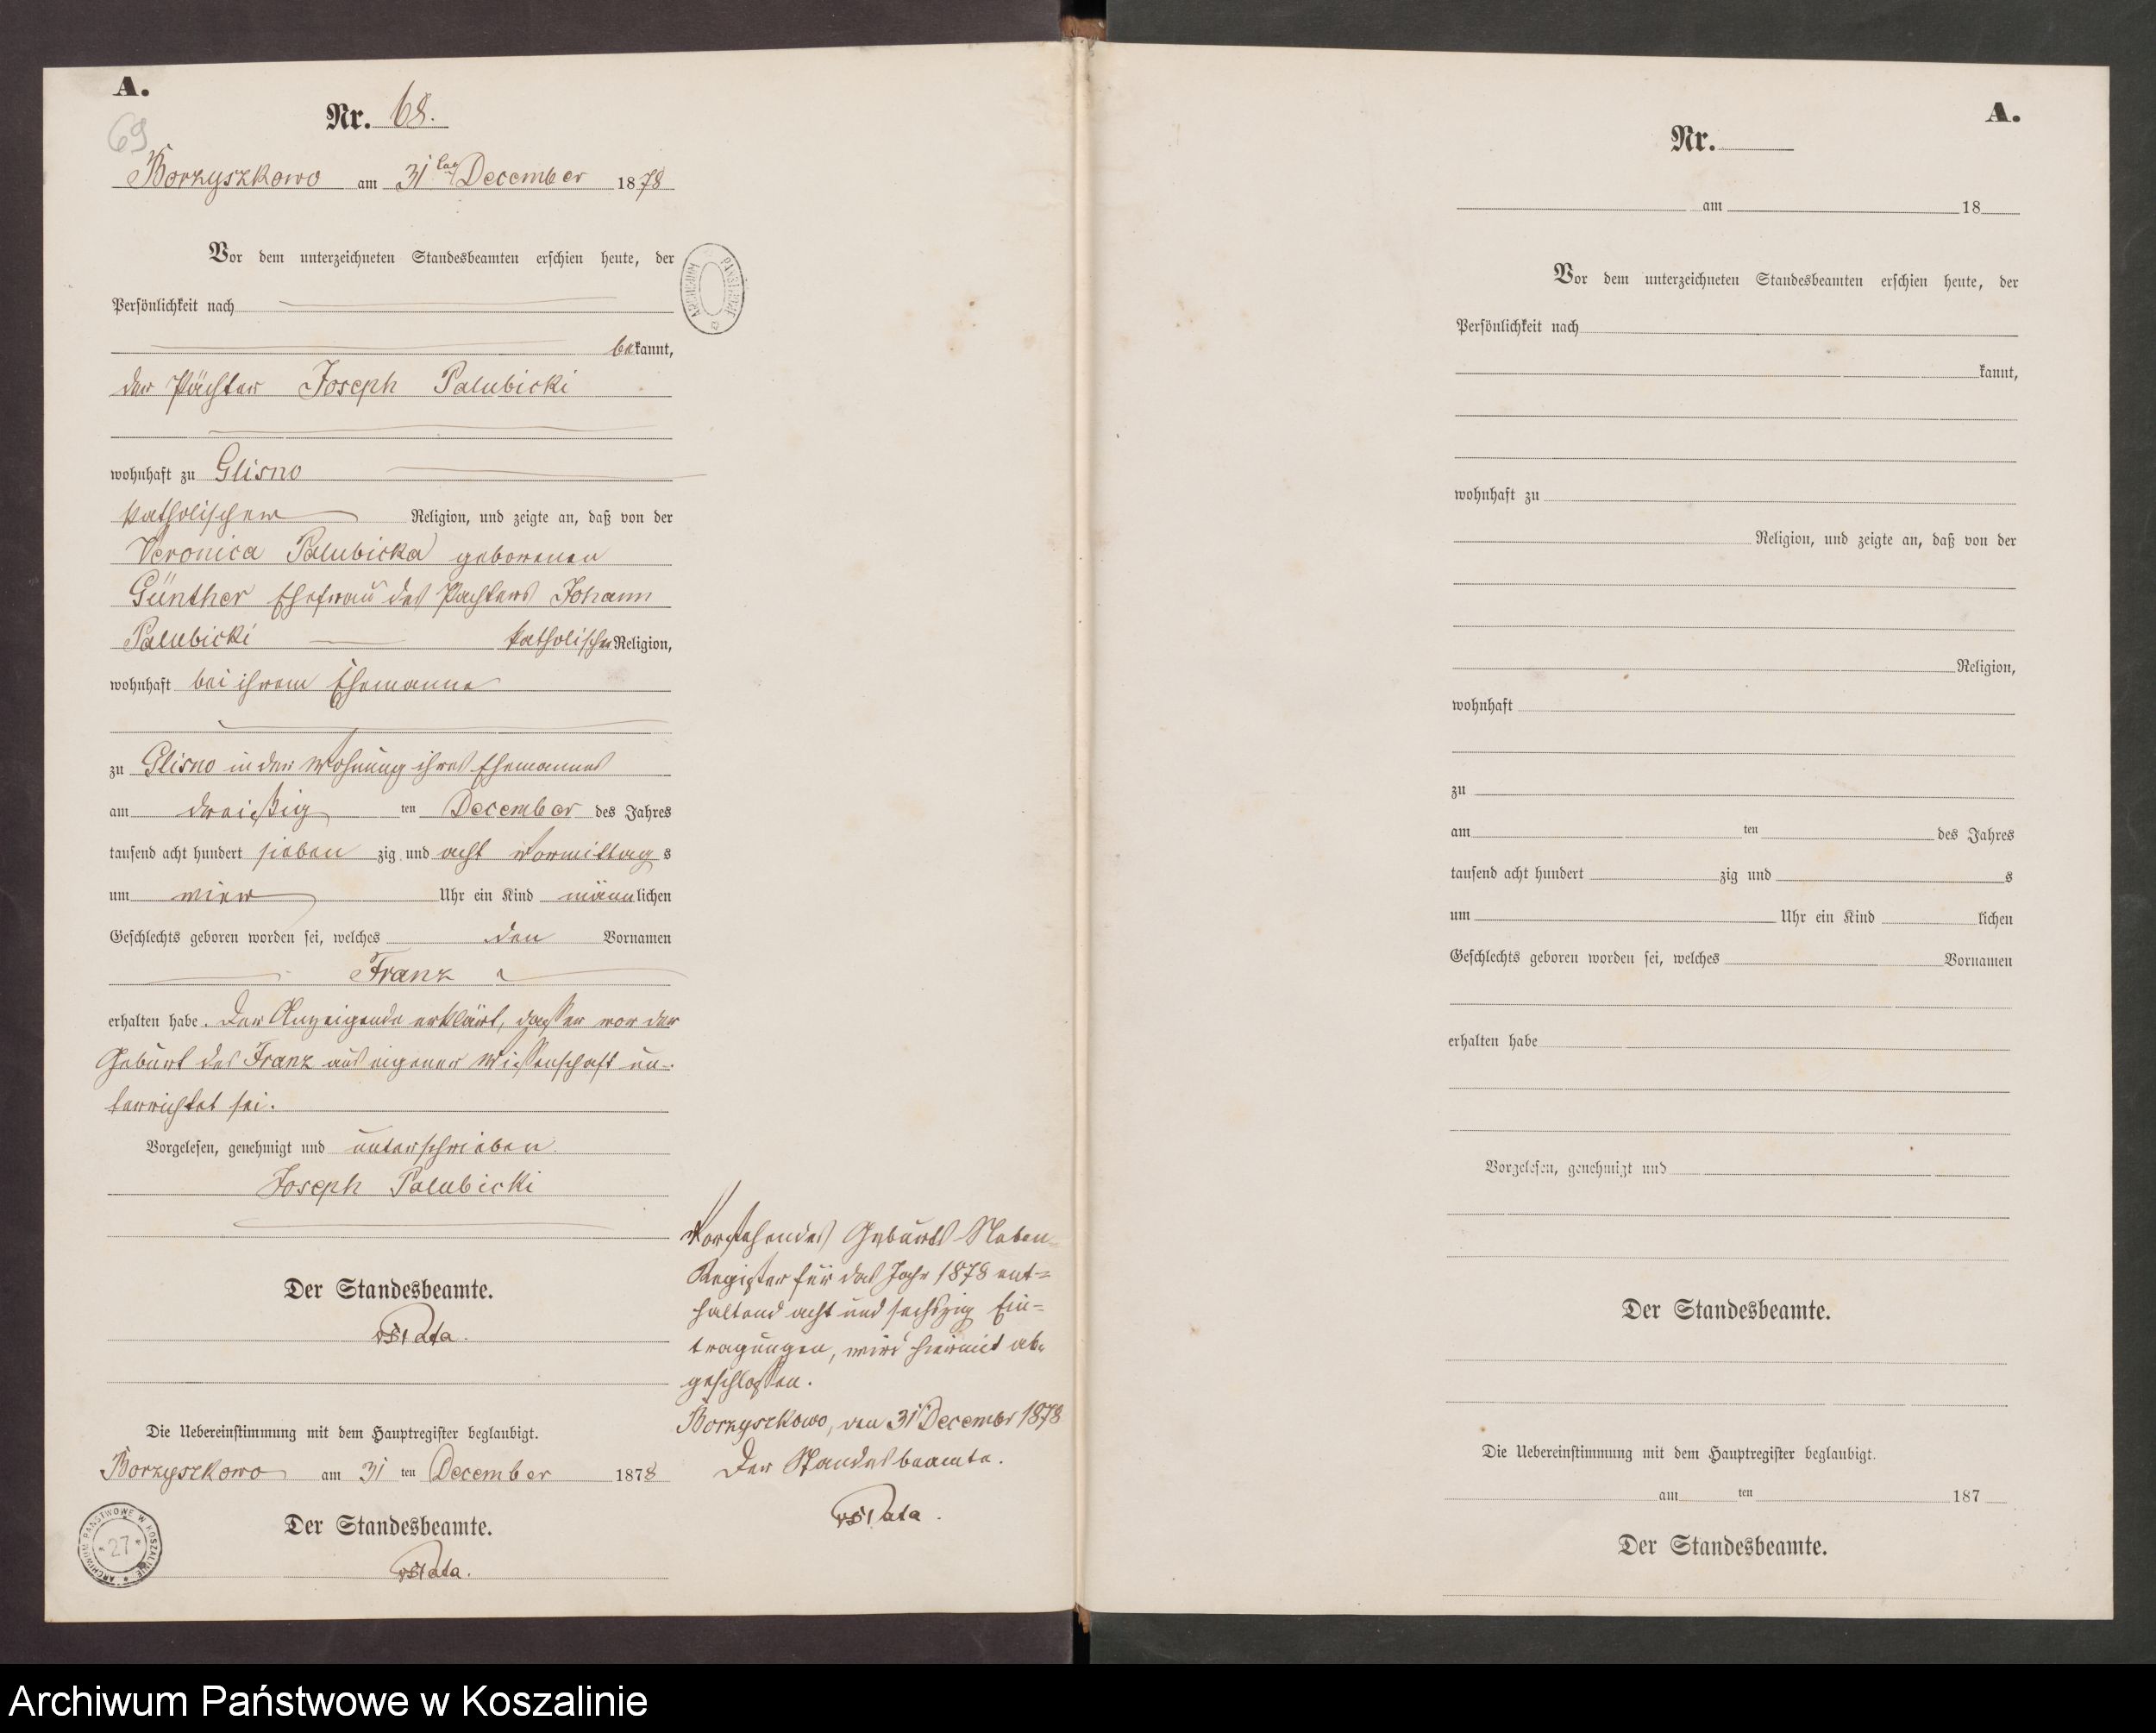 A.
69
Nr. 68.
Borzyszkowo am 31ten December 1878
Vor dem unterzeichneten Standesbeamten erschien heute, der
Persönlichkeit nach
bekannt,
der Pächter Joseph Palubicki
wohnhaft zu Glisno
katholischer Religion, und zeigte an, daß von der
Veronica Palubicka geborenen
Günther Ehefrau des Pächters Johann
Palubicki katholischer Religion,
wohnhaft bei ihrem Ehemanne
zu Glisno in der Wohnung ihres Ehemannes
am dreißig ten December des Jahres
tausend acht hundert sieben zig und acht Vormittag s
um vier Uhr ein Kind männlichen
Geschlechts geboren worden sei, welches den Vornamen
Franz
erhalten habe. Der Anzeigende erklärt, dass er von der
Geburt des Franz aus eigener Wissenschaft un-
terrichtet sei.
Vorgelesen, genehmigt und unterschrieben
Joseph Palubicki
Der Standesbeamte.
Die Uebereinstimmung mit dem Hauptregister beglaubigt.
Borzyszkowo am 31 ten December 1878
Der Standesbeamte.
ARCHIWUM PAŃSTWOWE W KOSZALINIE
* 27 *
ARCHIWUM PAŃSTWOWE
Vorstehendes Geburts Neben-
Register für das Jahr 1878 ent=
haltend acht und sechszig Ein=
tragungen, wird hiermit ab=
geschlossen.
Borzyszkowo, den 31 December 1878
Der Standesbeamte.
A.
Nr.
am 18
Vor dem unterzeichneten Standesbeamten erschien heute, der
Persönlichkeit nach
kannt,
wohnhaft zu
Religion, und zeigte an, daß von der
Religion,
wohnhaft
zu
am ten des Jahres
tausend acht hundert zig und s
um Uhr ein Kind lichen
Geschlechts geboren worden sei, welches Vornamen
erhalten habe
Vorgelesen, genehmigt und
Der Standesbeamte.
Die Uebereinstimmung mit dem Hauptregister beglaubigt.
am ten 187
Der Standesbeamte.
Archiwum Państwowe w Koszalinie